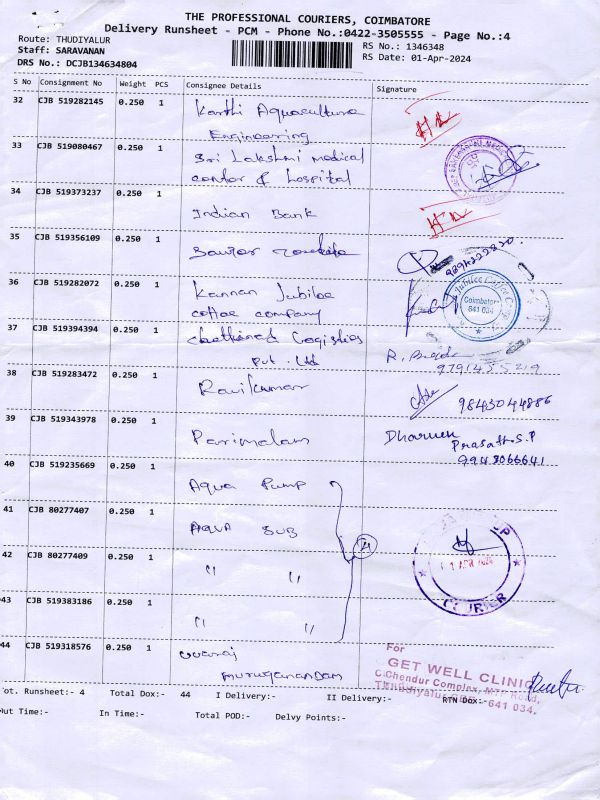 THE PROFESSIONAL COURIERS, COIMBATORE
Delivery Runsheet - PCM - Phone No.:0422-3505555 - Page No.:4
Route: THUDIYALUR
RS No.: 1346348
Staff: SARAVANAN
RS Date: 01-Apr-2024
DRS No.: DCJB134634804
S No Consignment No Weight PCS Consignee Details Signature
32 CJB 519282145 0.250 1 Karthi Aquaculture
Engineering
33 CJB 519080467 0.250 1 Sri Lakshmi medical
center & hospital
34 CJB 519373237 0.250 1 Indian Bank
35 CJB 519356109 0.250 1
9894222820
36 CJB 519282072 0.250 1 Kannan Jubilee
coffee company
Jubilee Coffee
Coimbatore
641 034
37 CJB 519394394 0.250 1 chettinad Logistics
Pvt. Ltd
38 CJB 519283472 0.250 1 Ravikumar
9843044886
39 CJB 519343978 0.250 1 Parimalam
Prasath.S.P
9943066641
40 CJB 519235669 0.250 1 Aqua Pump
41 CJB 80277407 0.250 1 Aqua SUB
42 CJB 80277409 0.250 1 " "
4
43 CJB 519383186 0.250 1 " "
COURIER
44 CJB 519318576 0.250 1
Muruganandam
For
GET WELL CLINIC
C.Chendur Complex, MTP Road,
641 034.
ot. Runsheet:- 4 Total Dox:- 44 I Delivery:- II Delivery:- RTN Dox:-
ut Time:- In Time:- Total POD:- Delvy Points:-